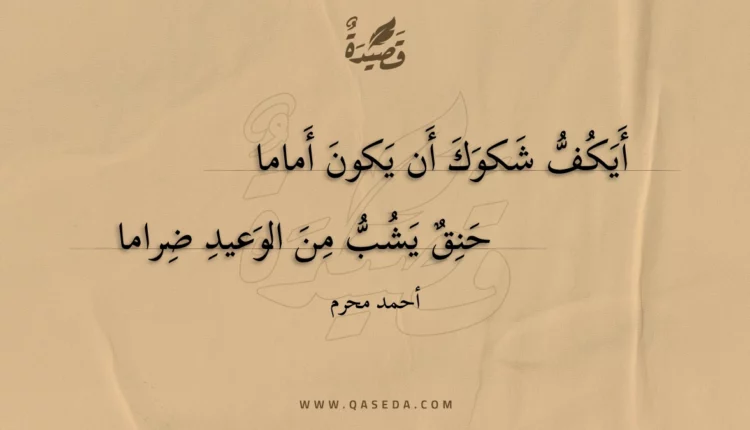 قَصِيدَةٌ
أَيَكُفُّ شَكوَكَ أَن يَكونَ أَماما
حَنِقٌ يَشُبُّ مِنَ الوَعيدِ ضِراما
أحمد محرم
WWW.QASEDA.COM